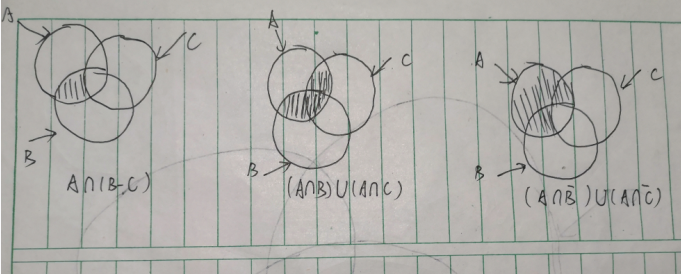 A
C
B
A∩(B-C)
A
C
B
(A∩B)∪(A∩C)
A
C
B
(A∩B̄)∪(A∩C̄)